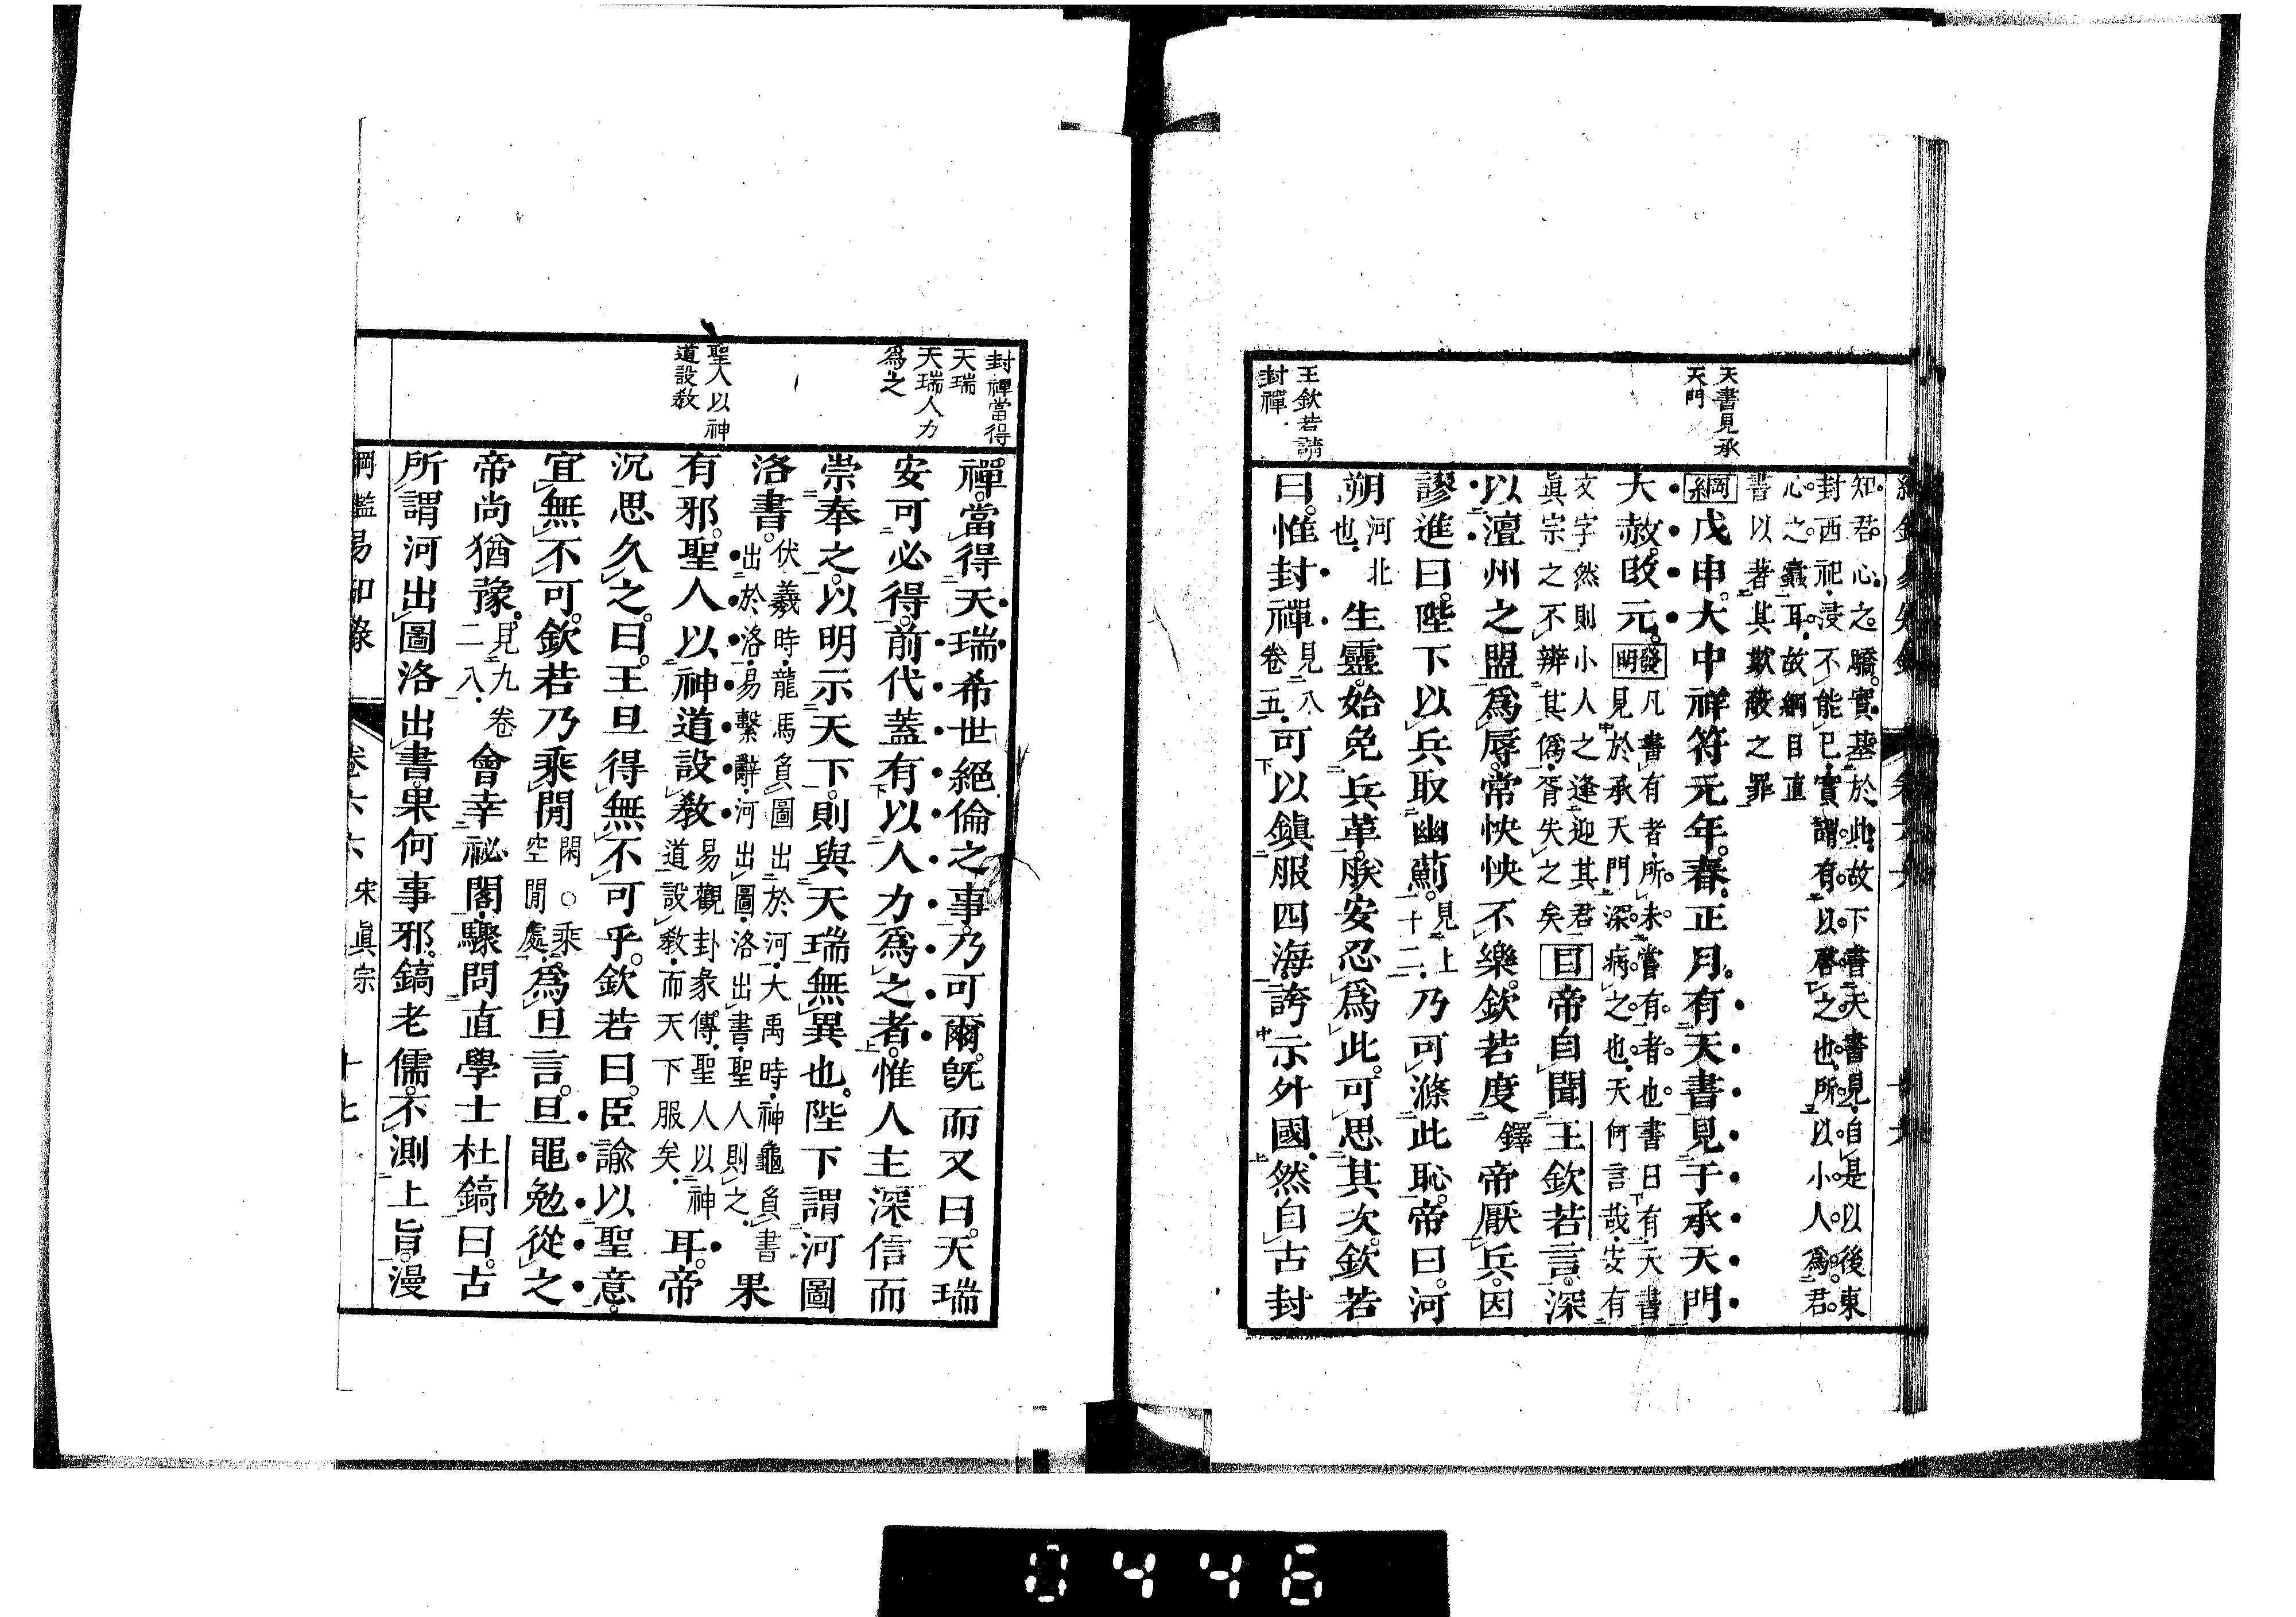 天書見承
天門
王欽若請
封禪
知君心之驕實基於此故下書天書見自是以後東
封西祀浸不能已實謂有以啓之也所以小人爲君
心之蠹耳故綱目直
書以著其欺蔽之罪
綱戊申大中祥符元年春正月有天書見于承天門
大赦改元發明凡書有者所未嘗有者也書曰有天書
見於承天門深病之也天何言哉安有
文字然則小人之逢迎其君
眞宗之不辨其僞胥失之矣目帝自聞王欽若言深
以澶州之盟爲辱常怏怏不樂欽若度鐸帝厭兵因
謬進曰陛下以兵取幽薊見上十二乃可滌此恥帝曰河
朔河北也生靈始免兵革朕安忍爲此可思其次欽若
曰惟封禪見八卷一五可以鎭服四海誇示外國然自古封
封禪當得
天瑞
天瑞人力
爲之
聖人以神
道設敎
禪當得天瑞希世絕倫之事乃可爾旣而又曰天瑞
安可必得前代蓋有以人力爲之者惟人主深信而
崇奉之以明示天下則與天瑞無異也陛下謂河圖
洛書伏羲時龍馬負圖出於河大禹時神龜負書
出於洛易繫辭河出圖洛出書聖人則之果
有邪聖人以神道設敎易觀卦彖傳聖人以神
道設敎而天下服矣耳帝
沉思久之曰王旦得無不可乎欽若曰臣諭以聖意
宜無不可欽若乃乘閒閑○乘空閒處爲旦言旦黽勉從之
帝尚猶豫見九卷二八會幸祕閣驟問直學士杜鎬曰古
所謂河出圖洛出書果何事邪鎬老儒不測上旨漫
綱鑑易知錄 卷六六 宋眞宗 十七
0446